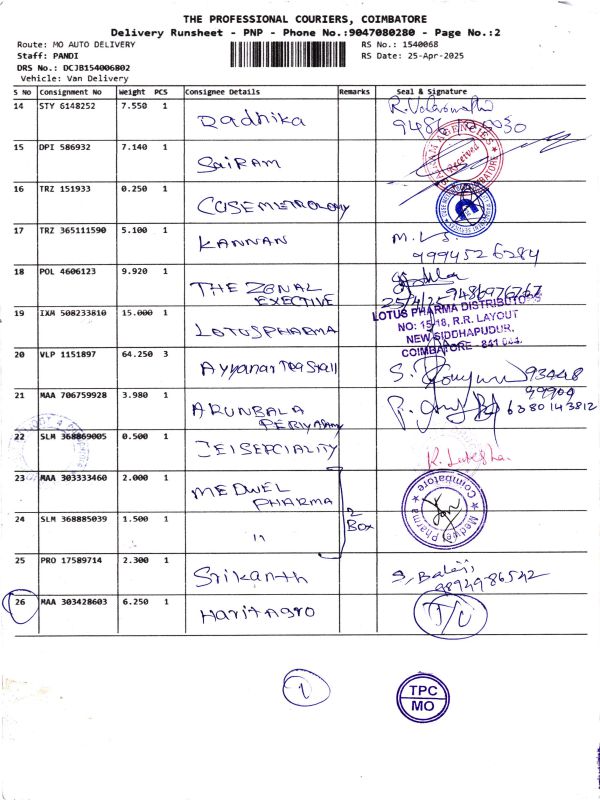 THE PROFESSIONAL COURIERS, COIMBATORE
Delivery Runsheet - PNP - Phone No.:9047080280 - Page No.:2
Route: MO AUTO DELIVERY RS No.: 1540068
Staff: PANDI RS Date: 25-Apr-2025
DRS No.: DCJB154006802
Vehicle: Van Delivery
S No Consignment No Weight PCS Consignee Details Remarks Seal & Signature
14 STY 6148252 7.550 1 Radhika
15 DPI 586932 7.140 1 SaiRAM Received
16 TRZ 151933 0.250 1 COSEMETROLOGY
17 TRZ 365111590 5.100 1 KANNAN 9994526284
18 POL 4606123 9.920 1 THE ZONAL
EXECTIVE 25/4/25 9486976767
19 IXM 508233810 15.000 1 LOTUSPHARMA LOTUS PHARMA DISTRIBUTORS
NO: 15-18, R.R. LAYOUT
NEW SIDDHAPUDUR,
COIMBATORE - 641 044.
20 VLP 1151897 64.250 3 Ayyanar Tea Stall 93448
99904
21 MAA 706759928 3.980 1 ARUNBALA
PERIYASAMY 6380143812
22 SLM 368869005 0.500 1 JEISEPCIALITY
23 MAA 303333460 2.000 1 MEDWEL
PHARMA Medwel Pharma Coimbatore
2
BOX
24 SLM 368885039 1.500 1 "
25 PRO 17589714 2.300 1 Srikanth S. Balaji
9894986542
26 MAA 303428603 6.250 1 Harit Agro
1
TPC
MO